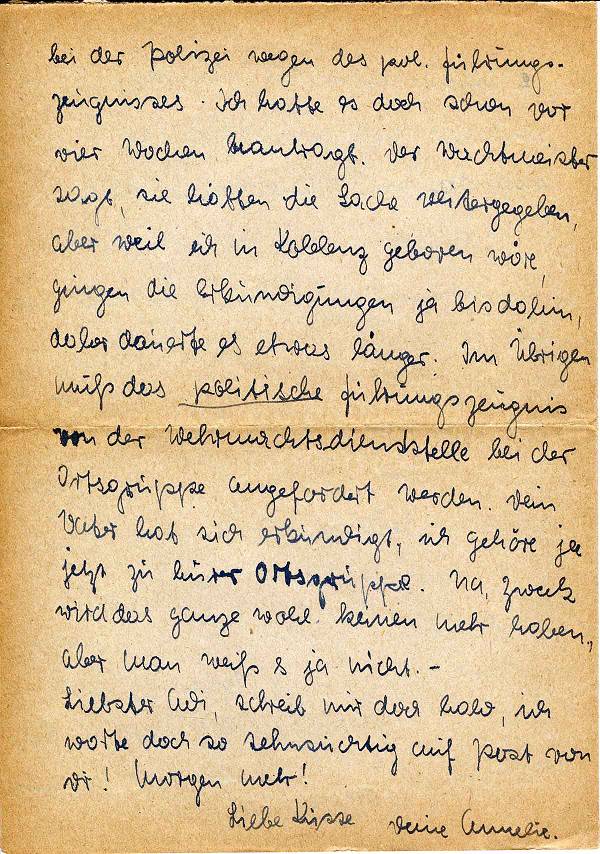 bei der Polizei wegen des pol. Führungs-
zeugnisses. Ich hatte es doch schon vor
vier Wochen beantragt. Der Wachtmeister
sagt, sie hätten die Sache weitergegeben,
aber weil ich in Koblenz geboren wäre,
gingen die Erkundigungen ja bis dahin,
daher dauerte es etwas länger. Im Übrigen
muß das politische Führungszeugnis
von der Wehrmachtsdienststelle bei der
Ortsgruppe angefordert werden. Dein
Vater hat sich erkundigt, ich gehöre ja
jetzt zu Ortsgruppe. Na, Zweck
wird das ganze wohl keinen mehr haben,
aber man weiß es ja nicht. –
Liebster Adi, schreib mir doch bald, ich
warte doch so sehnsüchtig auf Post von
Dir! Morgen mehr!
Liebe Küsse Deine Annelie.